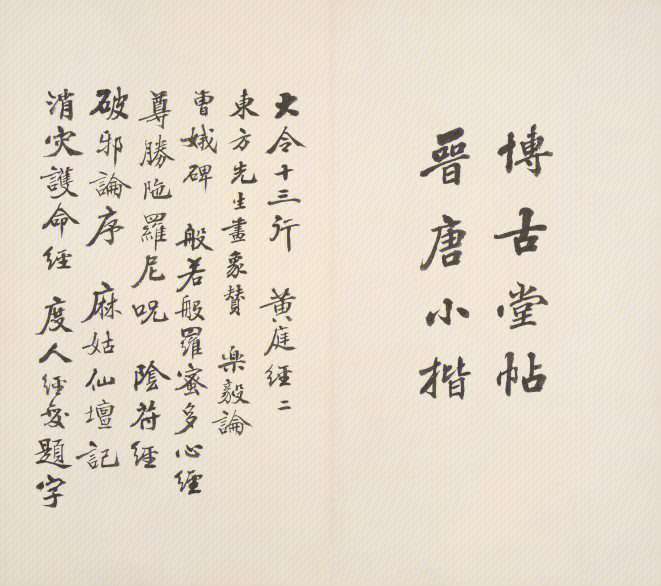 博古堂帖
晉唐小楷
大令十三行 黃庭經二
東方先生畫象贊 樂毅論
曹娥碑 般若般羅蜜多心經
尊勝陁羅尼呪 陰符經
破邪論序 麻姑仙壇記
消灾護命經 度人經 題字